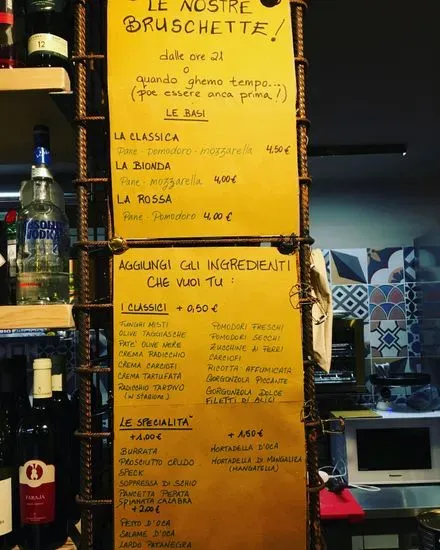 LE NOSTRE
BRUSCHETTE!
dalle ore 21
o
quando ghemo tempo...
(poe essere anca prima!)
LE BASI
LA CLASSICA
Pane - pomodoro - mozzarella 4,50 €
LA BIONDA
Pane - mozzarella 4,00 €
LA ROSSA
Pane - Pomodoro 4,00 €
AGGIUNGI GLI INGREDIENTI
CHE VUOI TU:
I CLASSICI + 0,50 €
FUNGHI MISTI
OLIVE TAGGIASCHE
PATE' OLIVE NERE
CREMA RADICCHIO
CREMA CARCIOFI
CREMA TARTUFATA
RADICCHIO TARDIVO
(in stagione)
POMODORI FRESCHI
POMODORI SECCHI
ZUCCHINE AI FERRI
CARCIOFI
RICOTTA AFFUMICATA
GORGONZOLA PICCANTE
GORGONZOLA DOLCE
FILETTI DI ALICI
LE SPECIALITA'
+1,00 €
BURRATA
PROSCIUTTO CRUDO
SPECK
SOPPRESSA DI SCHIO
PANCETTA PEPATA
SPIANATA CALABRA
+2,00 €
PETTO D'OCA
SALAME D'OCA
LARDO PATANEGRA
+ 1,50 €
MORTADELLA D'OCA
MORTADELLA DI MANGALIZA
(MANGATELLA)
12
ABSOLUT
VODKA
FARAJA